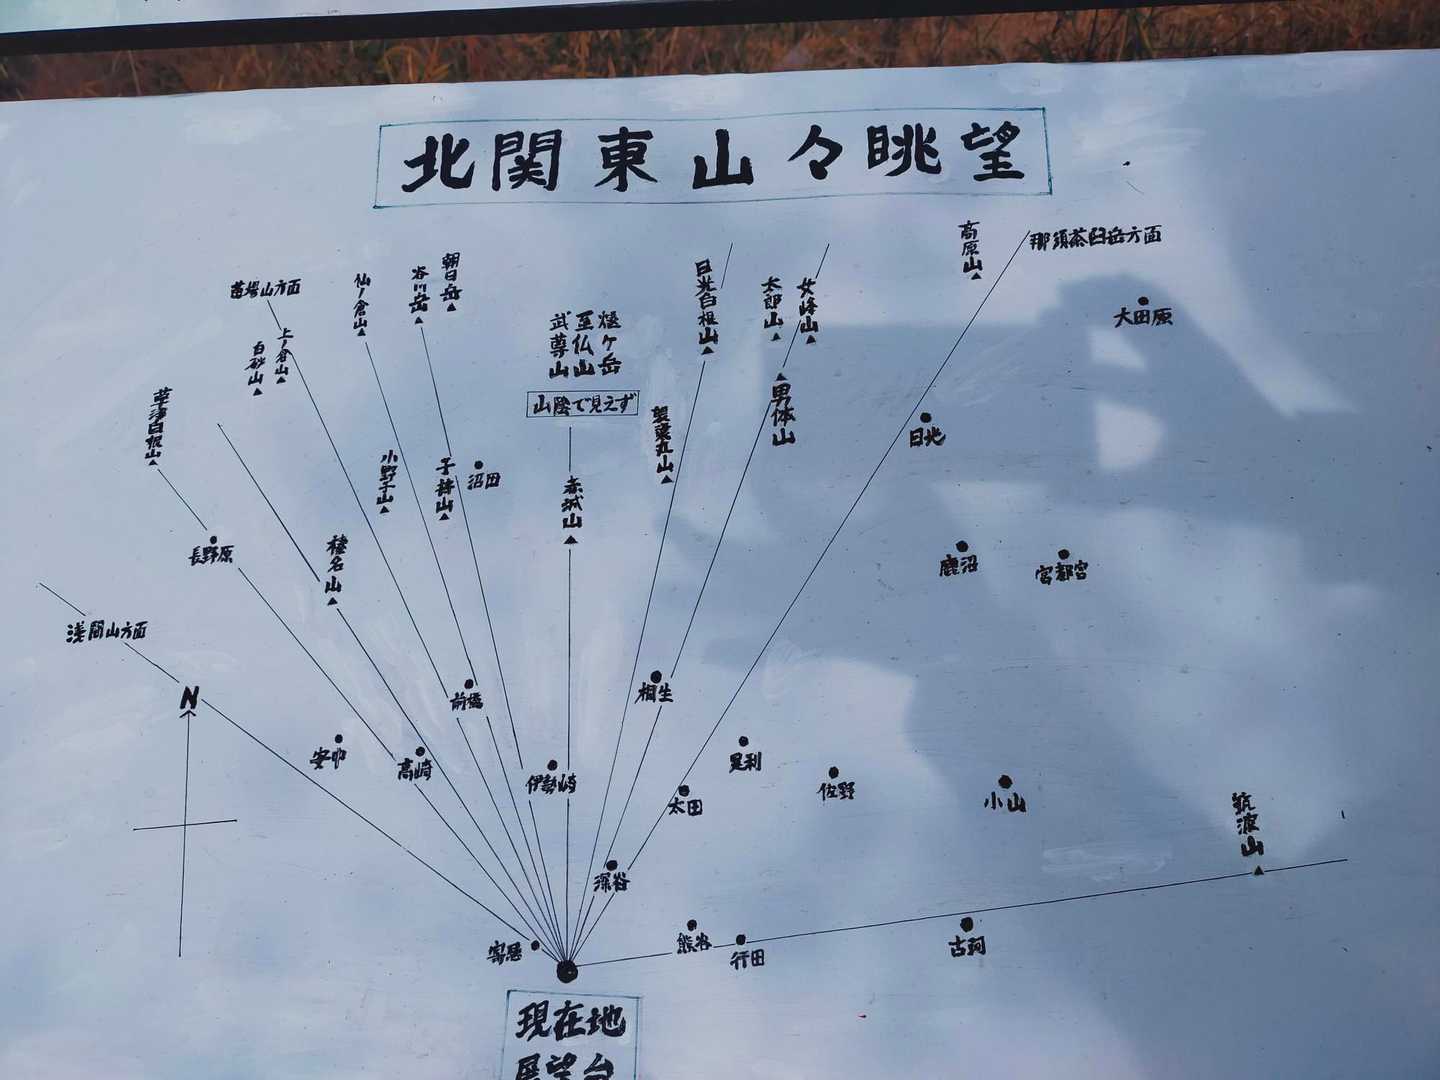 北関東山々眺望
那須茶臼岳方面
高原山
朝日岳
谷川岳
仙ノ倉山
苗場山方面
上ノ倉山
白砂山
日光白根山
太郎山
女峰山
大田原
燧ケ岳
至仏山
武尊山
山陰で見えず
男体山
草津白根山
袈裟丸山
日光
小野子山
子持山
沼田
赤城山
長野原
榛名山
鹿沼
宮都宮
浅間山方面
N
前橋
桐生
安中
高崎
伊勢崎
足利
太田
佐野
小山
筑波山
深谷
寄居
熊谷
行田
古河
現在地
展望台